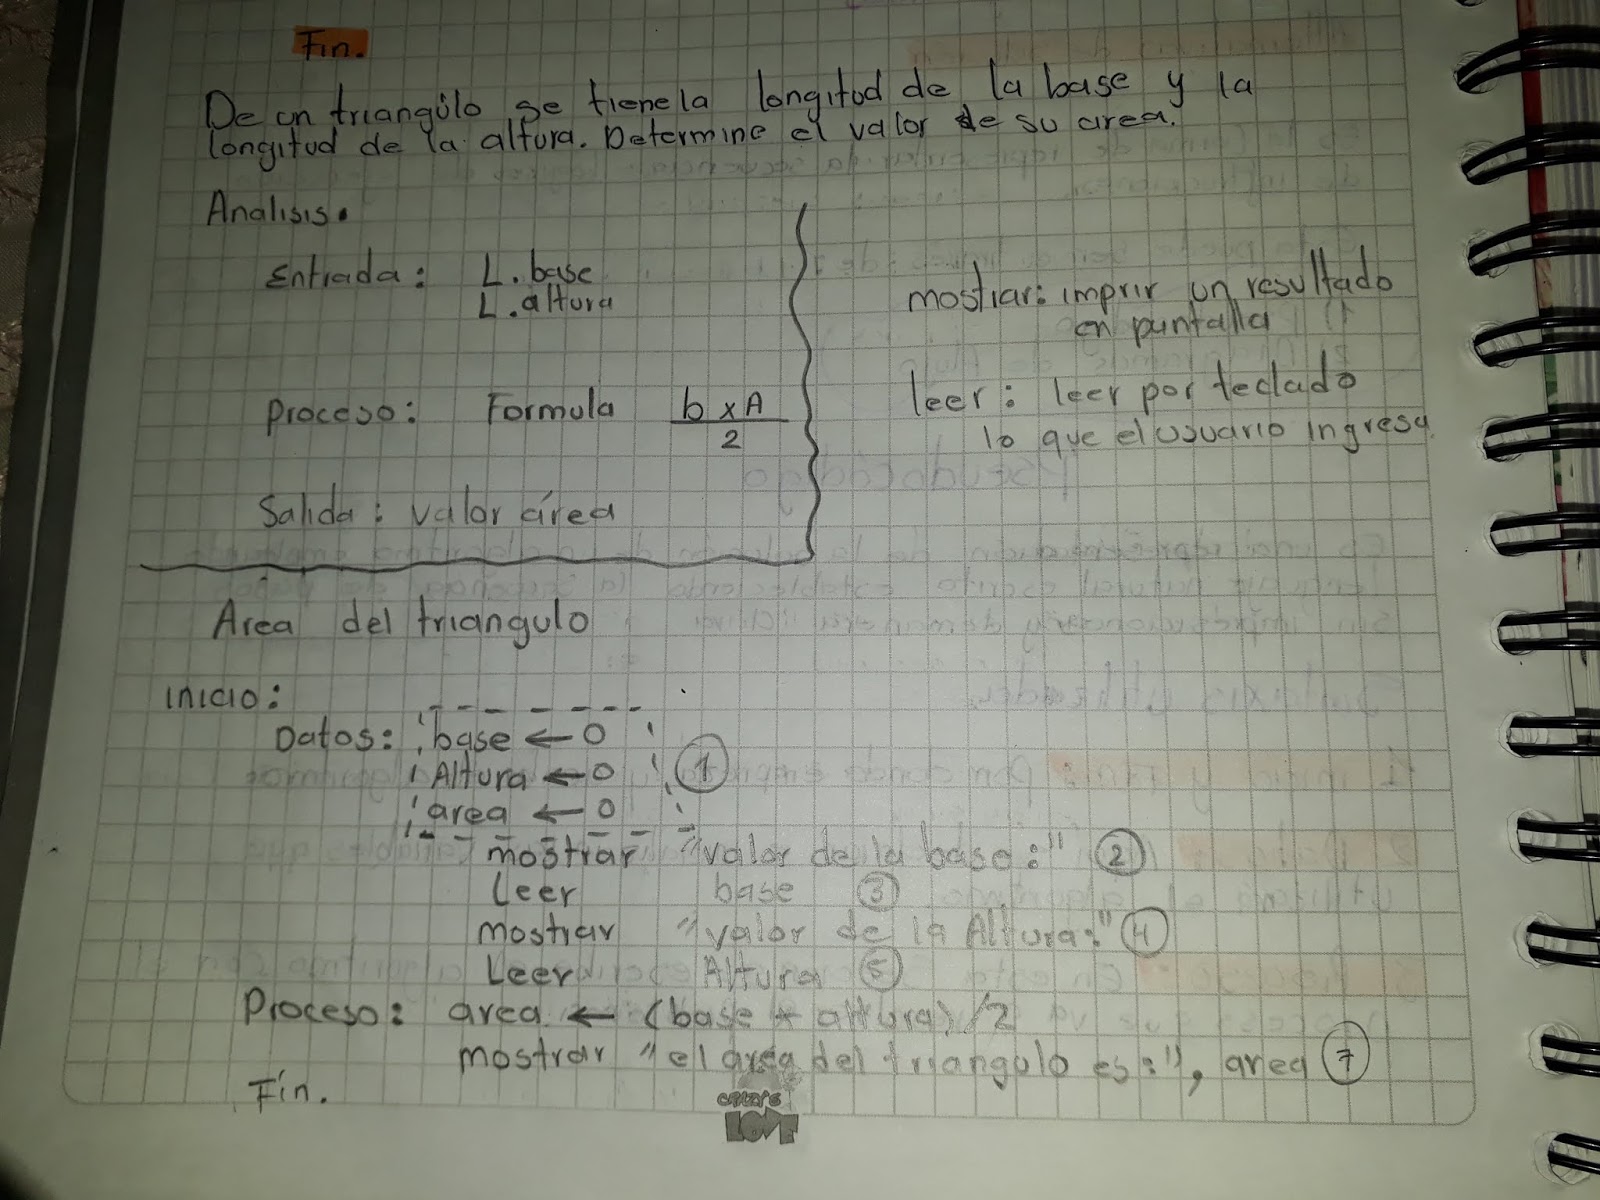 Fin.
De un triangulo se tiene la longitud de la base y la
longitud de la altura. Determine el valor de su area.
Analisis.
Entrada: L. base
L. altura
Proceso: Formula b x A
2
Salida: valor área
mostrar: imprir un resultado
en puntalla
leer: leer por teclado
lo que el usuario ingresa
Area del triangulo
Inicio:
Datos: base ← 0
Altura ← 0
area ← 0
1
mostrar "valor de la base:" 2
Leer base 3
mostrar "valor de la Altura:" 4
Leer Altura 5
Proceso: area ← (base * altura) /2
mostrar "el area del triangulo es:", area 7
Fin.
LOVE